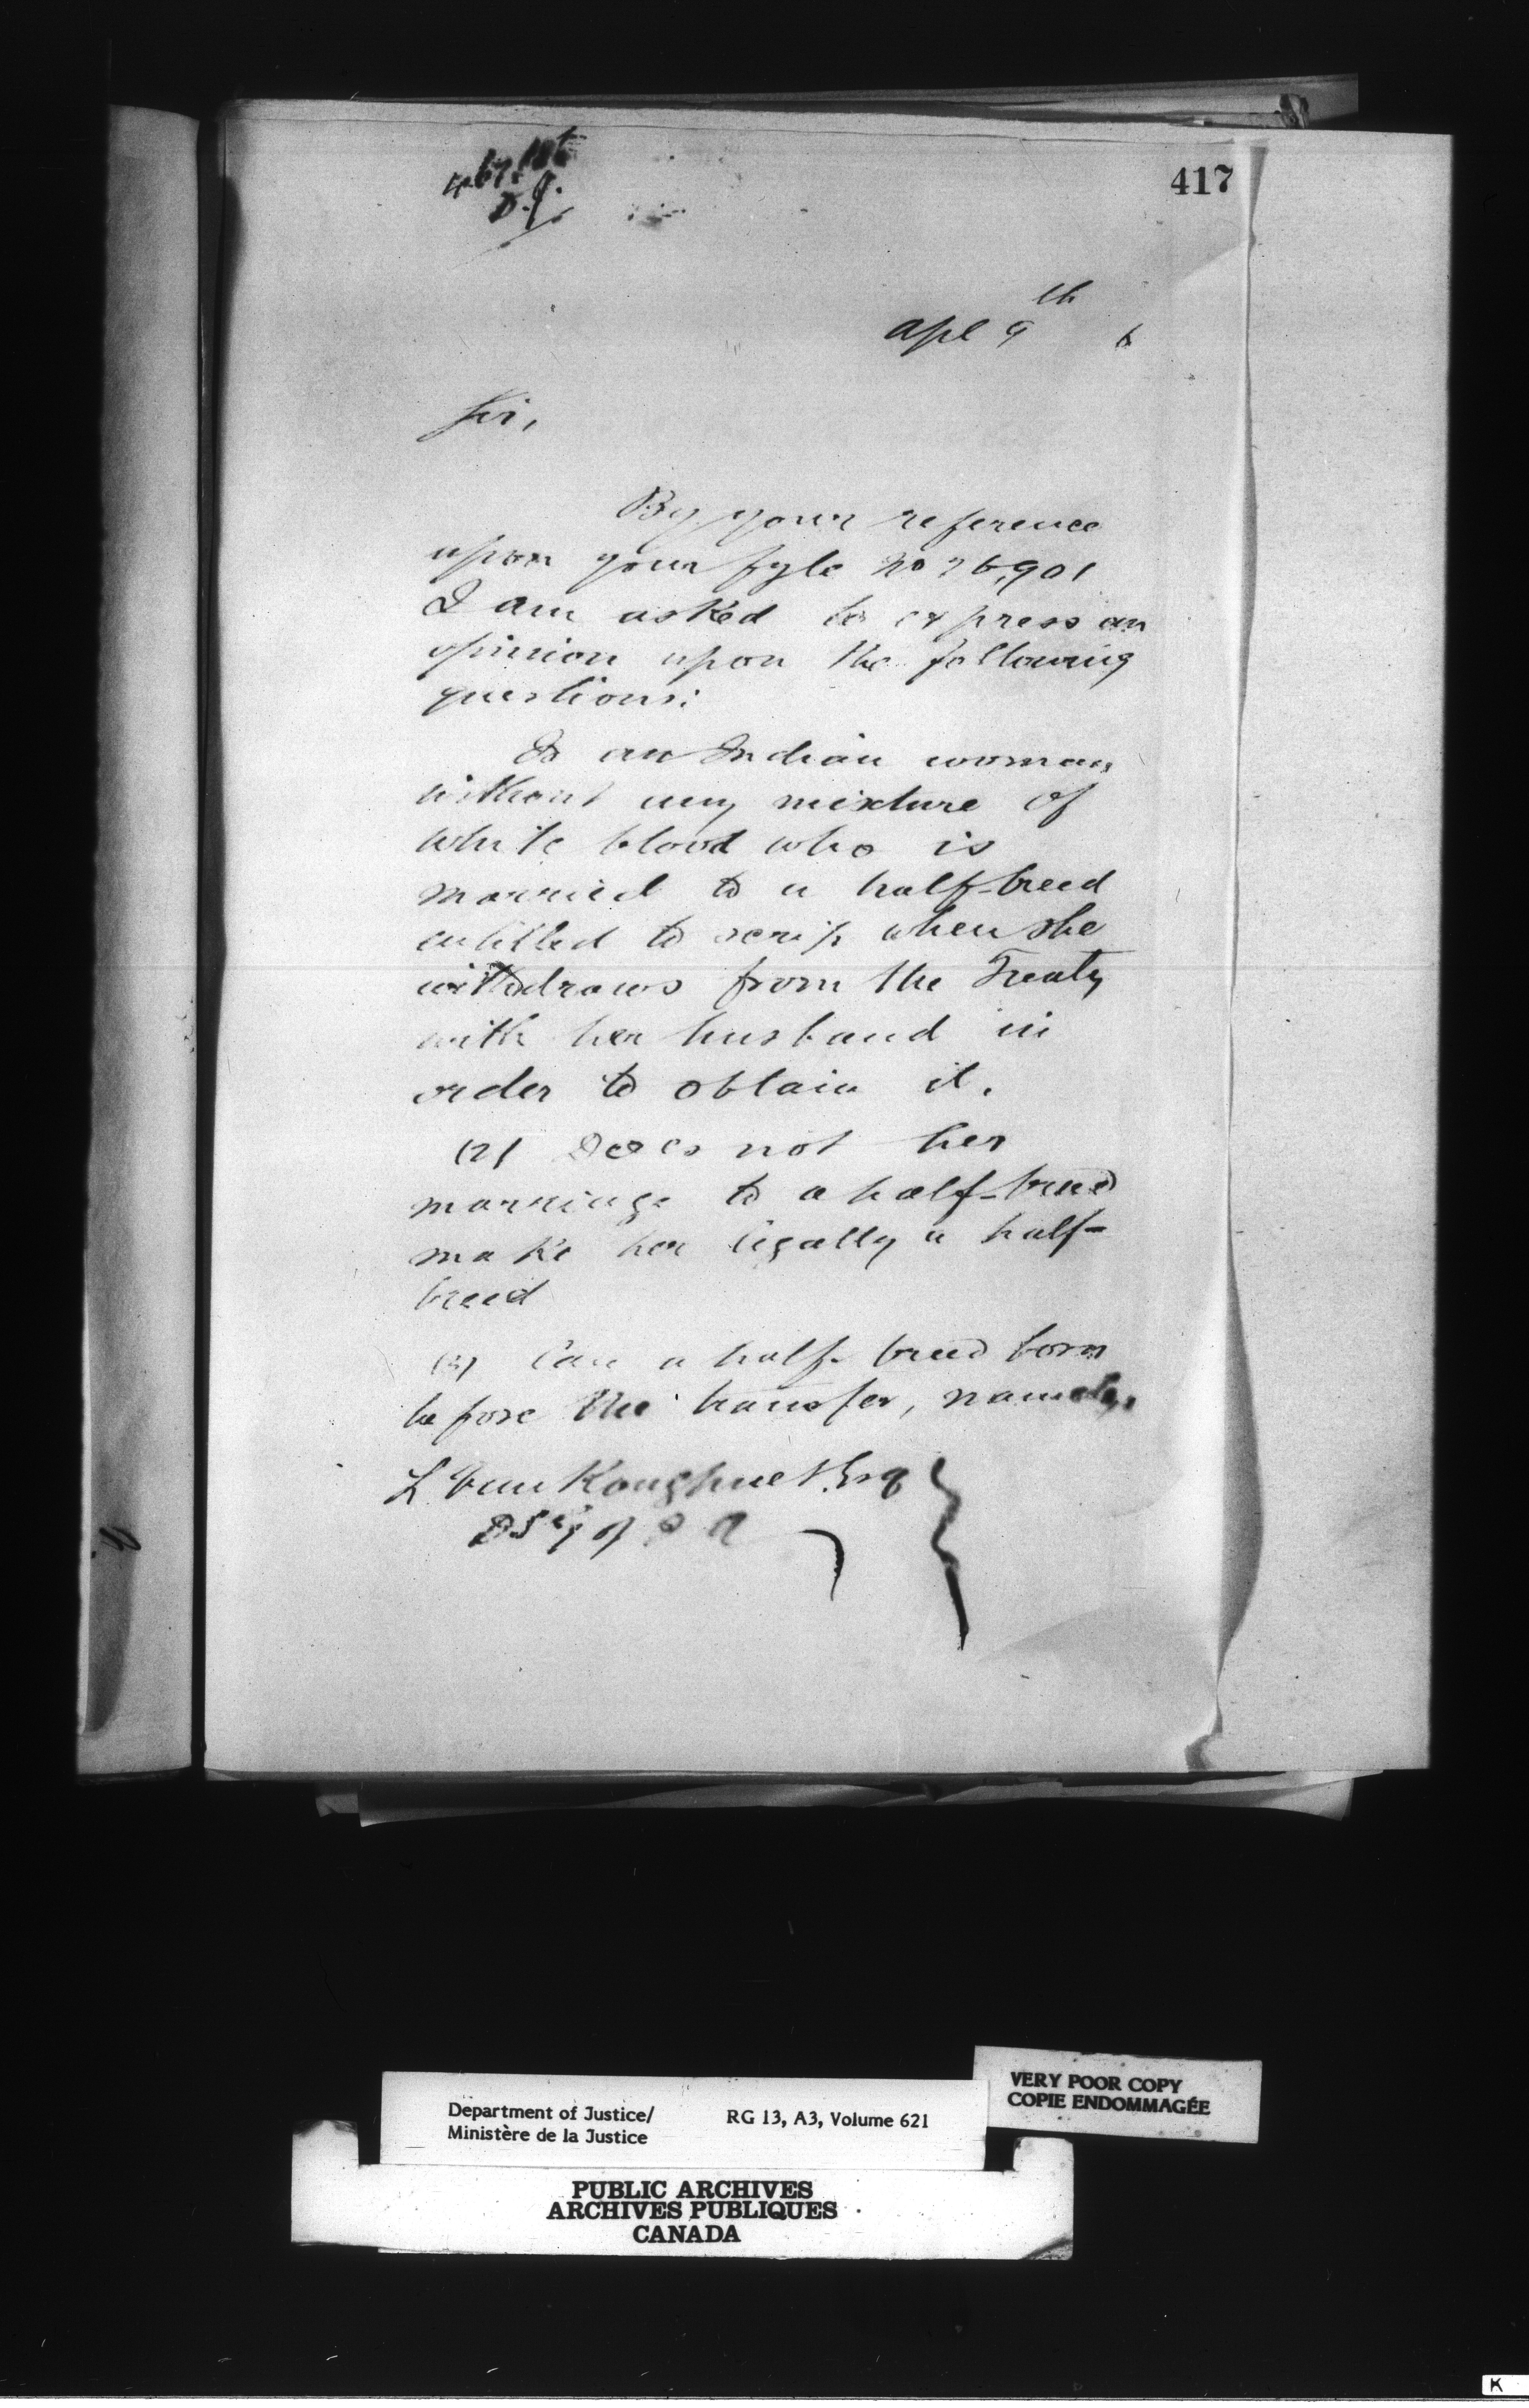 417
D.J.
Apl 9th 6
Sir,
By your reference
upon your fyle No 26,901
I am asked to express an
opinion upon the following
questions:
Is an Indian woman,
without any mixture of
white blood who is
married to a half-breed
entitled to scrip when she
withdraws from the Treaty
with her husband in
order to obtain it.
(2) Does not her
marriage to a half-breed
make her legally a half-
breed
(3) Can a half-breed born
before the transfer, namely,
L. VanKoughnet Esq
D S Gl of I A
VERY POOR COPY
COPIE ENDOMMAGÉE
Department of Justice/ RG 13, A3, Volume 621
Ministère de la Justice
PUBLIC ARCHIVES
ARCHIVES PUBLIQUES
CANADA
K